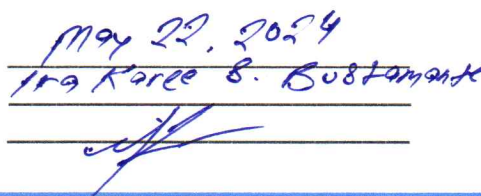 May 22, 2024
Ira Karee B. Bustamante